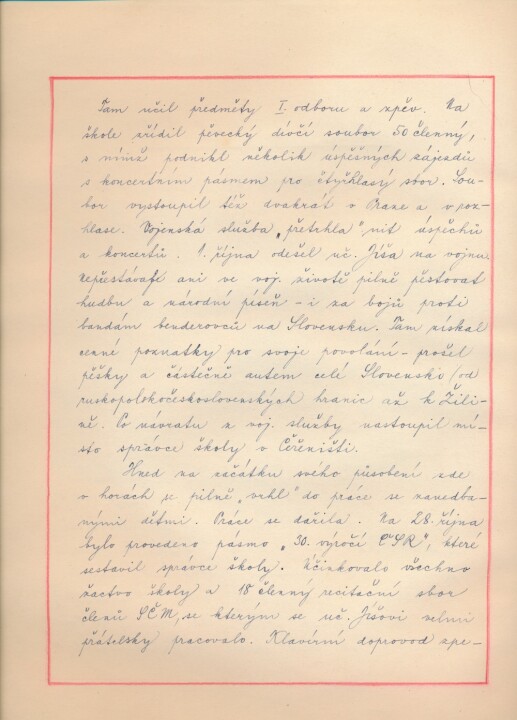 Tam učil předměty I. odboru a zpěv. Na
škole zřídil pěvecký dívčí soubor 50 členný,
s nímž podnikl několik úspěšných zájezdů
s koncertním pásmem pro čtyřhlasý sbor. Sou-
bor vystoupil též dvakrát v Praze a v roz-
hlase. Vojenská služba „přetrhla" nit úspěchů
a koncertů. 1. října odešel uč. Jíša na vojnu
nepřestávaje ani ve voj. životě pilně pěstovat
hudbu a národní píseň - i za bojů proti
bandám benderovců na Slovensku. Tam získal
cenné poznatky pro svoje povolání - prošel
pěšky a částečně autem celé Slovensko (od
ruskopolskočeskoslovenských hranic až k Žili-
ně. Po návratu z voj. služby nastoupil mí-
sto správce školy v Čeřeništi.
Hned na začátku svého působení zde
v horách se pilně „vrhl" do práce se zanedba-
nými dětmi. Práce se dařila. Na 28. října
bylo provedeno pásmo „30. výročí ČSR", které
sestavil správce školy. Účinkovalo všechno
žactvo školy a 18 členný recitační sbor
členů SČM, se kterým se uč. Jíšovi velmi
přátelsky pracovalo. Klavírní doprovod zpe-